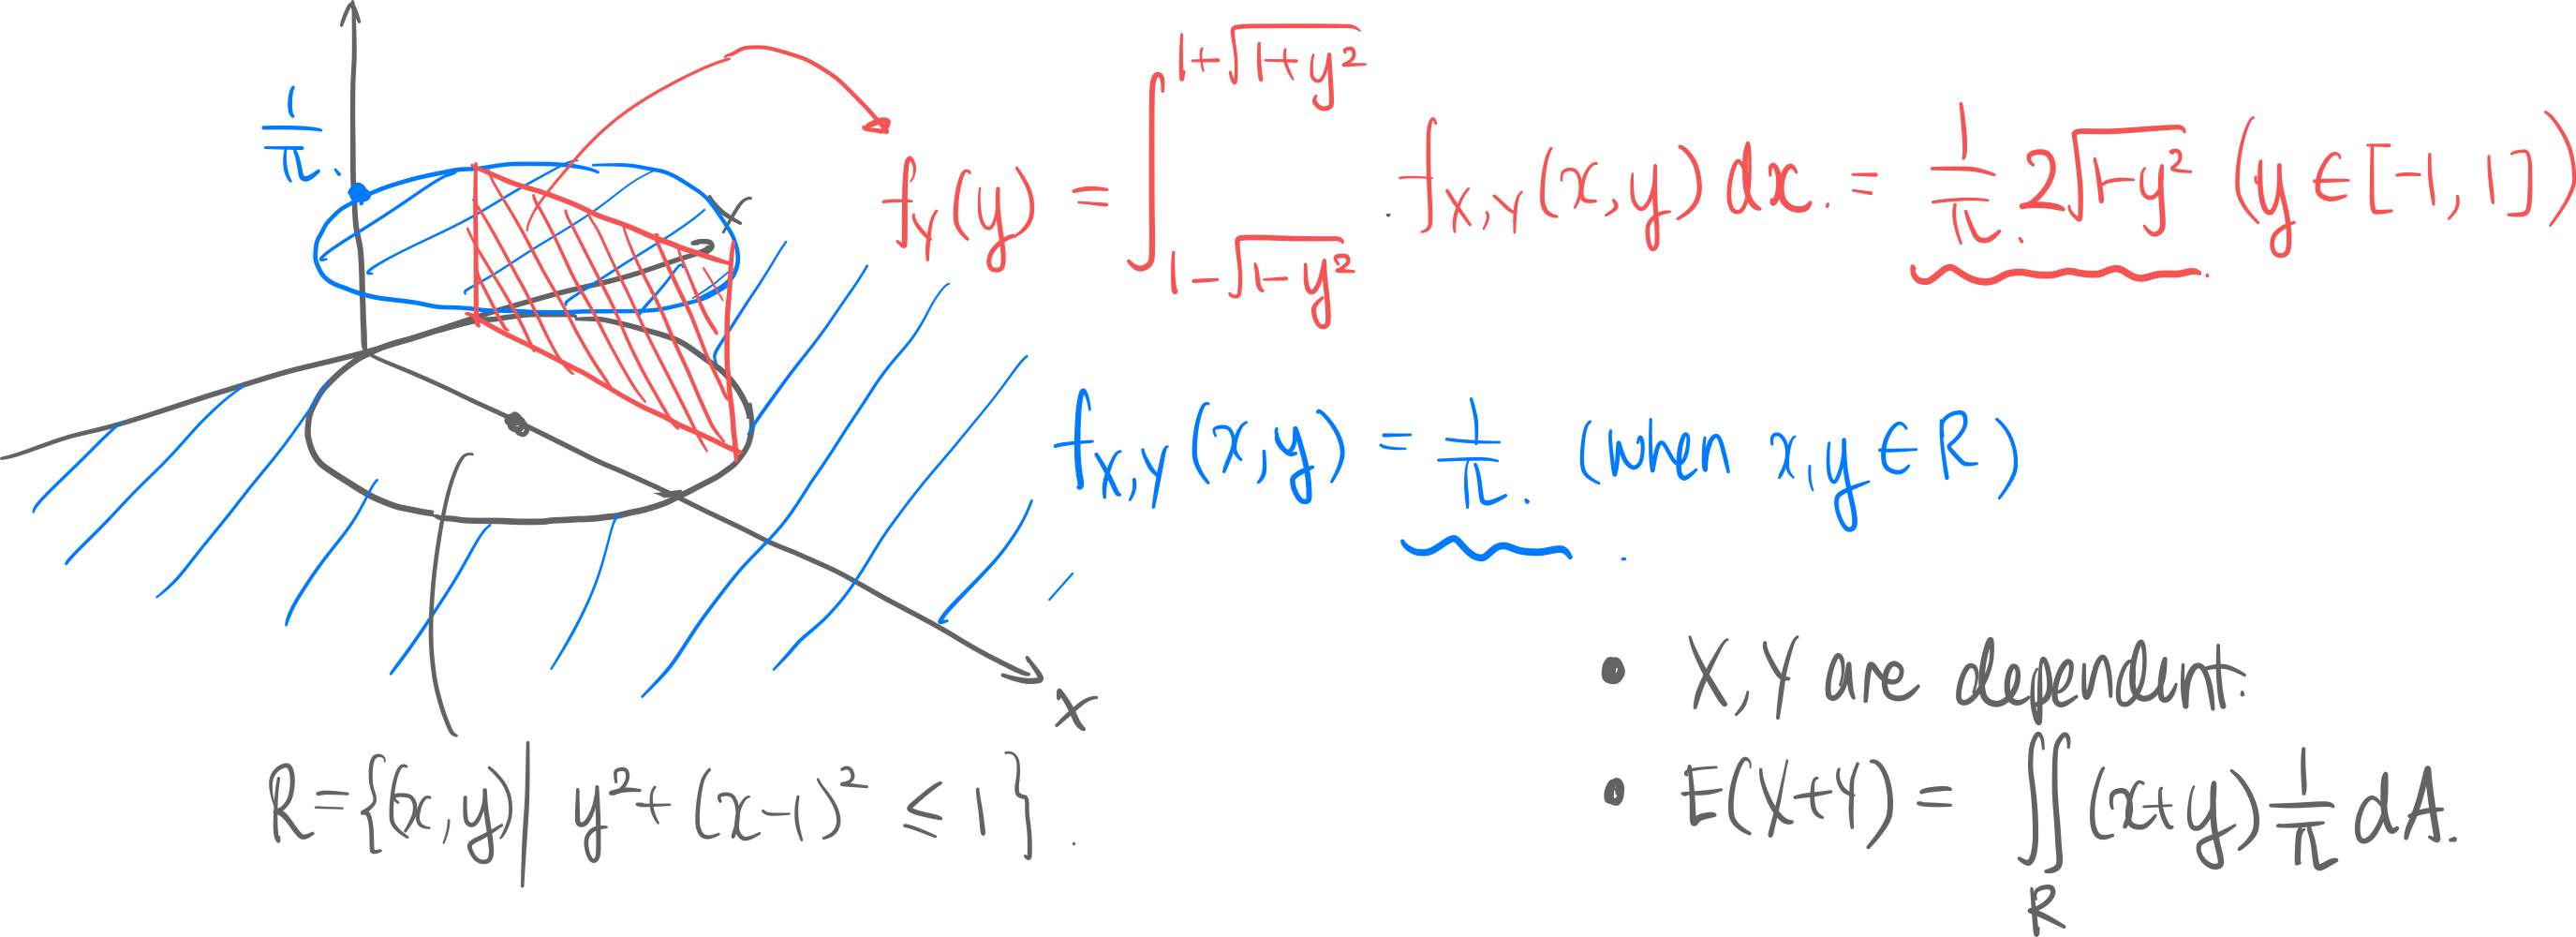 1/π.
Y
f_Y(y) = ∫_{1-√(1-y²)}^{1+√(1+y²)} f_{X,Y}(x,y) dx. = 1/π. 2√(1-y²) (y ∈ [-1, 1])
f_{X,Y}(x,y) = 1/π. (when x,y ∈ R)
x
R = {(x,y) | y² + (x-1)² ≤ 1}.
• X, Y are dependent.
• E(X+Y) = ∬_R (x+y) 1/π dA.